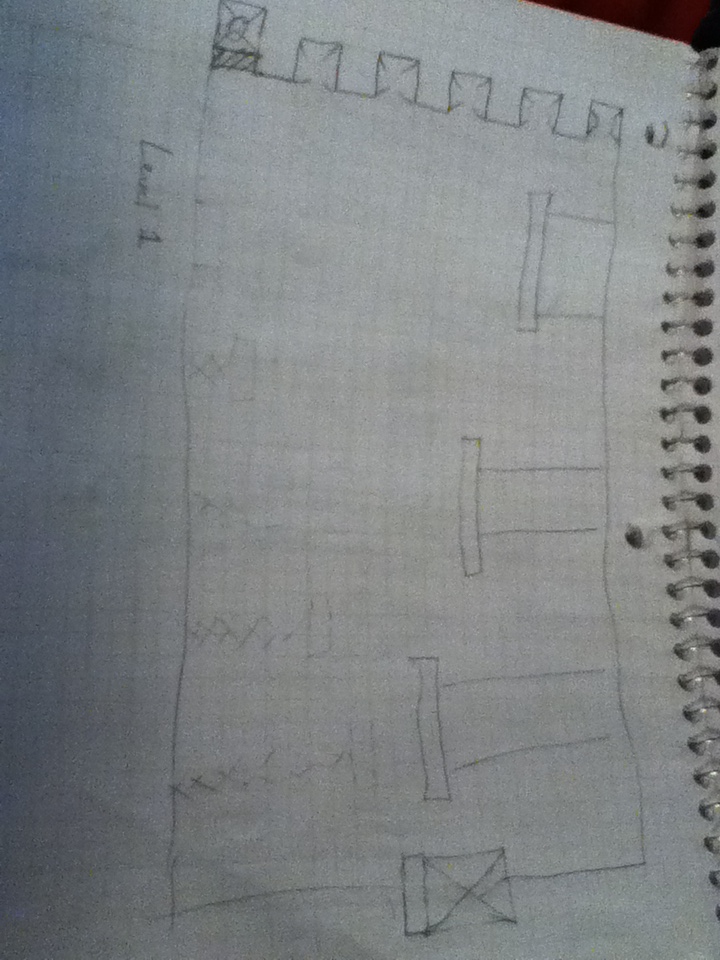 Level 1